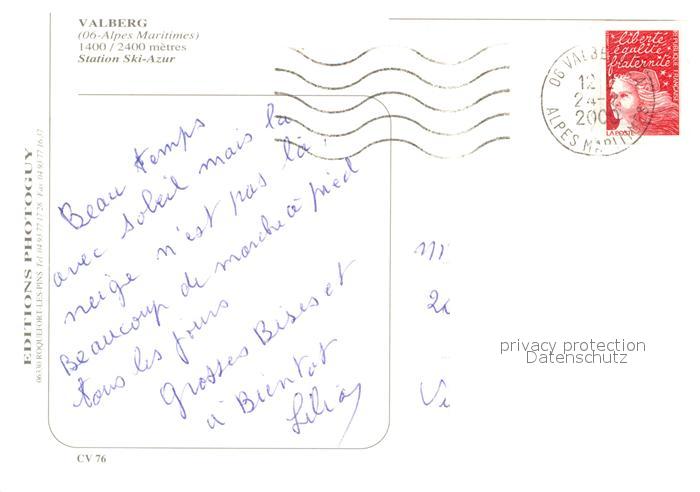 VALBERG
(06-Alpes Maritimes)
1400 / 2400 mètres
Station Ski-Azur
liberté
égalité
fraternité
RÉPUBLIQUE FRANÇAISE
LA POSTE
06 VALBE
12
24-
2000
ALPES MARITIMES
Beau temps
avec soleil mais la
neige n'est pas là,
Beaucoup de marche à pied
tous les jours
Grosses Bises et
à Bientot
EDITIONS PHOTOGUY
06330 ROQUEFORT-LES PINS Tél. 04 93 77 17 28 Fax 04 93 77 16 37
privacy protection
Datenschutz
CV 76